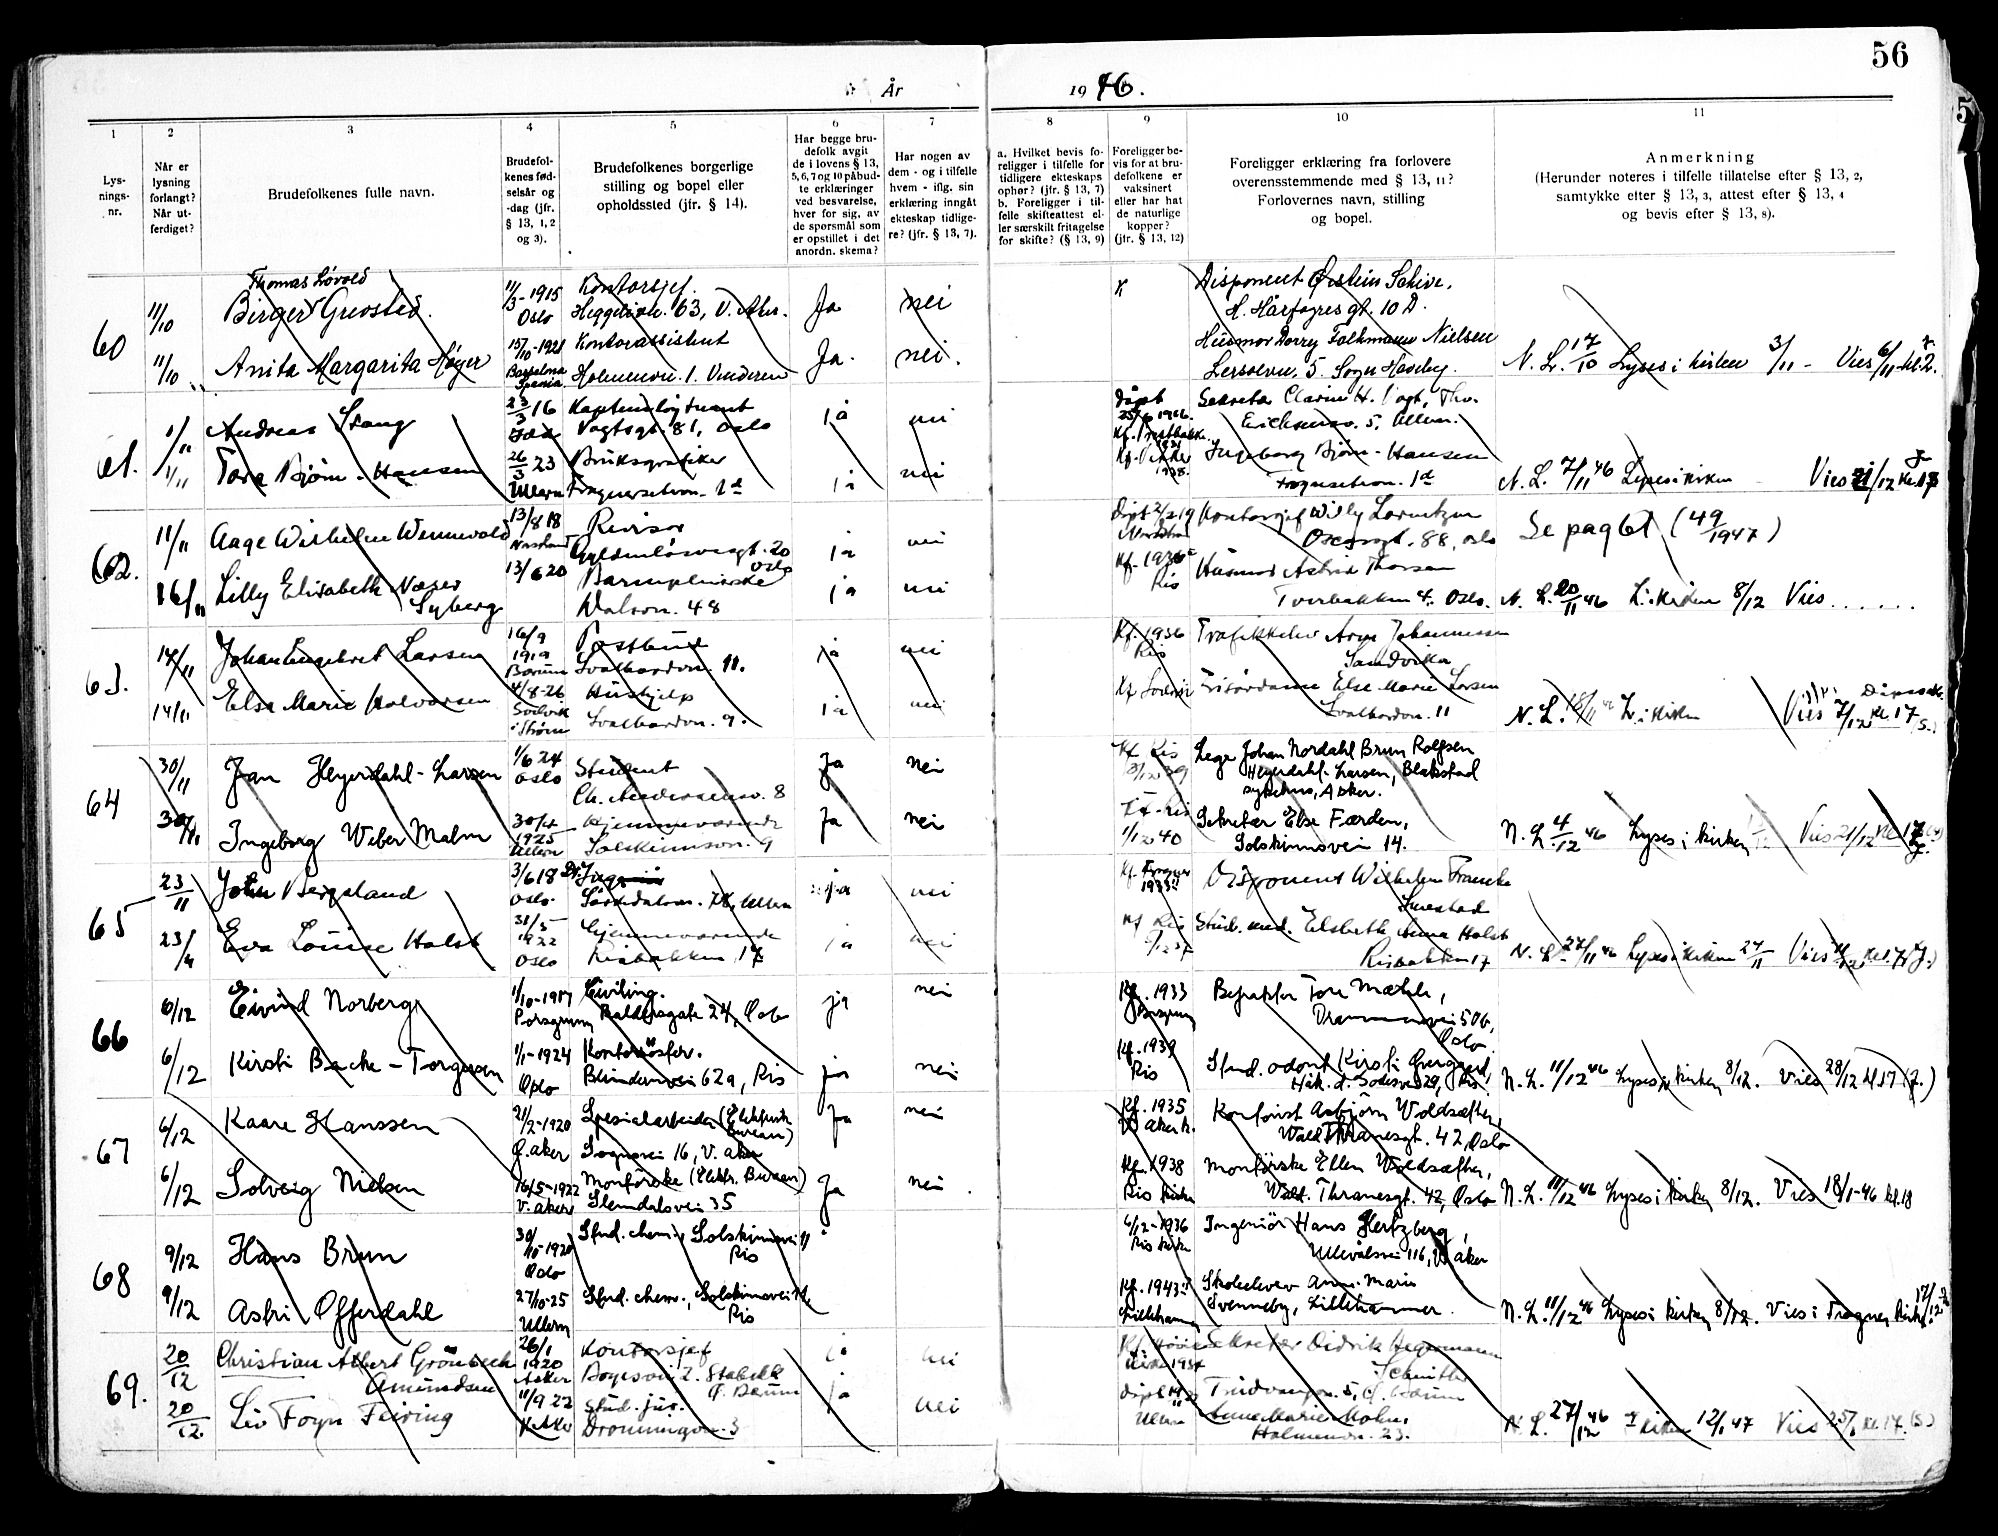 56
År
19 46.
1
2
3
4
5
6
7
8
9
10
11
Lys-
nings-
nr.
Når er
lysning
forlangt?
Når ut-
ferdiget?
Brudefolkenes fulle navn.
Brudefol-
kenes fød-
selsår og
-dag (jfr.
§ 13, 1, 2
og 3).
Brudefolkenes borgerlige
stilling og bopel eller
opholdssted (jfr. § 14).
Har begge bru-
defolk avgit
de i lovens § 13,
5, 6, 7 og 10 påbud-
te erklæringer
ved besvarelse,
hver for sig, av
de spørsmål som
er opstillet i det
anordn. skema?
Har nogen av
dem - og i tilfelle
hvem - iflg. sin
erklæring inngått
ekteskap tidlige-
re? (jfr. § 13, 7).
a. Hvilket bevis fo-
religger i tilfelle for
tidligere ekteskaps
ophør? (jfr. § 13, 7)
b. Foreligger i til-
felle skifteattest el-
ler særskilt fritagelse
for skifte? (§ 13, 9)
Foreligger be-
vis for at bru-
defolkene er
vaksinert
eller har hat
de naturlige
kopper?
(jfr. § 13, 12)
Foreligger erklæring fra forlovere
overensstemmende med § 13, 11?
Forlovernes navn, stilling
og bopel.
Anmerkning
(Herunder noteres i tilfelle tillatelse efter § 13, 2,
samtykke efter § 13, 3, attest efter § 13, 4
og bevis efter § 13, 8).
60
11/10
Thomas Løvold
Birger
11/3-1915
Oslo
Kontorsjef.
63, V. Aker.
Ja
nei
K
Disponent Øistein Schive,
H. Hårfagresgt. 10 D.
11/10
Anita Margarita Høyer
15/10-1921
Spania
Kontorassistent
Holmenvn. 1. Vinderen
Ja.
nei.
Husmor Dorry Folkmann Nielsen
5. Sogn Haveby.
N. L. 17/10 Lyses i kirken 3/11 - Vies 6/11
61.
1/11
Andreas Stang
23/3 16
Kapteinløytnant
Vogtsgt. 81, Oslo
ja
nei
Døpt
Sekretær
5, Ullern.
1/11
Tore Bjørn-Hansen
26/3 23
Ullern
Bruksgrafiker
Frognersetervn. 1d
ja
nei
Ingeborg Bjørn-Hansen
Frognersetervn. 1d
N. L. 7/11 46 Lyses i kirken Vies 21/12 kl. 17
62.
11/11
Aage Wilhelm Wennevold
13/8 18
Revisor
Gyldenløvesgt. 20
Oslo
ja
nei
Kontorsjef Willy Lorentzen
88, Oslo
Se pag 61 (49/1947)
16/11
Lilly Elisabeth Næser
Syberg
13/6 20
Barnepleierske
48
ja
nei
Kf. 1936
Ris
Husmor Astrid Thorsen
Tverbakken 4, Oslo.
N. L. 20/11 46 L. i kirken 8/12 Vies......
63.
14/11
Johan Engebret Larsen
16/9
1919
Bærum
Postbud
Svalbardvn. 11.
ja
nei
Kf. 1936
Ris
Trafikkelev Arne Johannessen
Sandvika
14/11
Else Marie Halvorsen
4/8-26
Hushjelp
Svalbardvn. 9.
ja
nei
Frisørdame Else Marie Larsen
Svalbardvn. 11
N. L. L. i kirken Vies 7/12 kl. 17
64
30/11
Jan Heyerdahl-Larsen
1/6 24
Oslo
Student
8
Ja
nei
Kf Ris
Lege Johan Nordahl Brun Rolfsen
Heyerdahl-Larsen, Blakstad
sykehus, Asker.
30/11
Ingeborg Weber Malm
1925
Ullern
Hjemmeværende
Solskinnsvn. 9
Ja
nei
1/12 40
Sekretær Else Færden,
Solskinnsvein 14.
N. L. 4/12 46 Lyses i kirken Vies 21/12 kl 17
65
23/11
John Bergsland
3/6 18
Oslo.
Ullern
ja
nei
Kf. Frogner
1933
Disponent Wilhelm Francke
Smestad
23/11
Eva Louise Holst
31/5
1922
Oslo
Hjemmeværende
Risbakken 17
ja
nei
Kf Ris
Stud. med. Elsbeth Anna Holst
Risbakken 17
N. L. 27/11 46 Lyses i kirken
66
6/12
Eivind Norberg
1/10-1917
Porsgrunn
Siviling.
Baldersgate 24, Oslo
ja
nei
Kf. 1933
Tore Mæhle,
Drammensvei 50b,
Oslo.
6/12
Kirsti Backe-Torgersen
1/1-1924
Oslo
Blindernvei 62a, Ris
ja
nei
Kf. 1939
Ris
Stud. odont Kirsti
N. L. 11/12 46 Lyses i kirken 8/12. Vies 28/12 kl 17
67
6/12
Kaare Hanssen
21/2-1920
Ø. aker
Spesialarbeider (Elektrisk
Bureau)
Sognsvei 16, V. aker
Ja
nei
Kf. 1935
V akerk.
Kontorist Asbjörn Woldsæther,
Wald. Thranesgt. 42, Oslo
6/12
Solveig Nielsen
16/5-1922
V. aker
Montörske (Elektr. Bureau)
Slemdalsvei 35
Ja
nei.
Kf. 1938
Ris kirke
Montörske Ellen Woldsæther,
Wald. Thranesgt. 42, Oslo
N. L. 11/12 46 Lyses i kirken 8/12. Vies 18/1-46 kl. 18
68
9/12
Hans Brun
30/10-1920
Oslo
Stud. chem., Solskinnsvei 11
Ris
6/12-1936
Ris kirke
Ingeniör Hans Hertzberg,
Ullevålsvei 116, V. aker
9/12
Astri Offerdahl
27/10-25
Ullern
Stud. chem., Solskinnsvei
Ris
Kf. 1943
Lillehammer
Skoleelev Anne-Marie
Svenneby, Lillehammer.
N. L. 11/12 46 Lyses i kirken 8/12. Vies i Frogner kirke. 17/12
69.
20/12
Christian Albert Grönbech
Amundsen
26/1
1920
Asker
Kontorsjef
2. Stabekk
Ø. Bærum
ja
nei
Sekretær Didrik Hegermann
Schnitler
5, Ø. Bærum
20/12
Liv Foyn Feiring
11/9 22
V. Aker
Stud. jur.
Dronningvn. 3
ja
nei
Ullern
Anne Marie Mohn,
Holmenvn. 23.
N. L. 27/12 46 I kirken 12/1 47 Vies 25/1 kl. 17. (S.)